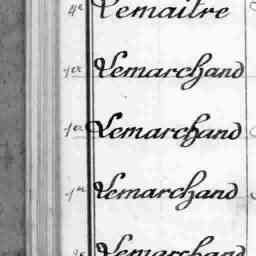 4e Lemaître
1er Lemarchand
1er Lemarchand
1er Lemarchand
Lemarchand